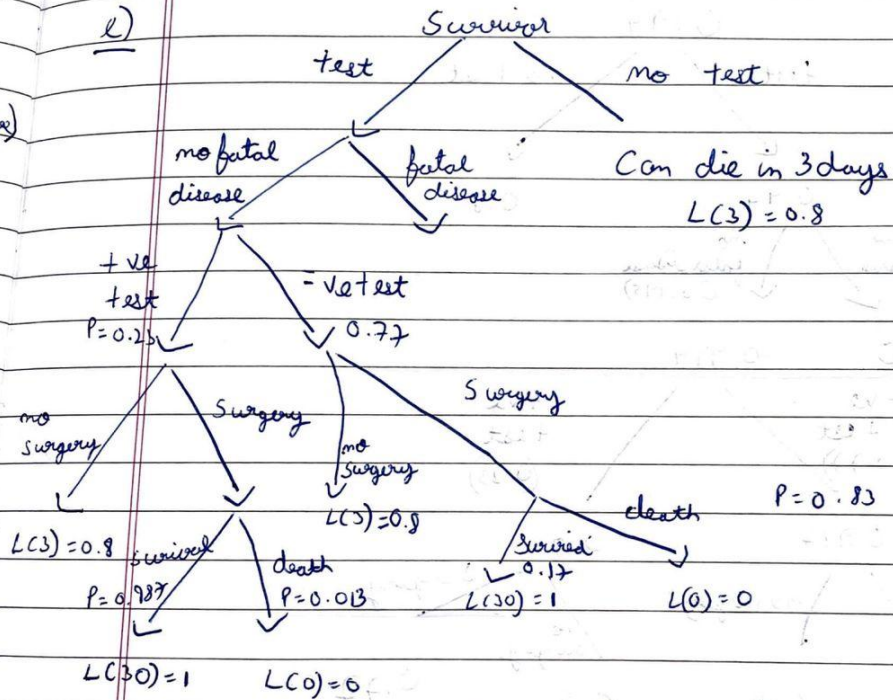 e)
Survivor
test
no test
no fatal disease
fatal disease
Can die in 3 days
L(3) = 0.8
+ve test
P=0.23
-ve test
0.77
no surgery
Surgery
no surgery
Surgery
L(3) = 0.8
L(3) = 0.8
survival
P=0.987
death
P=0.013
Survived
0.17
death
P = 0.83
L(30) = 1
L(0) = 0
L(30) = 1
L(0) = 0